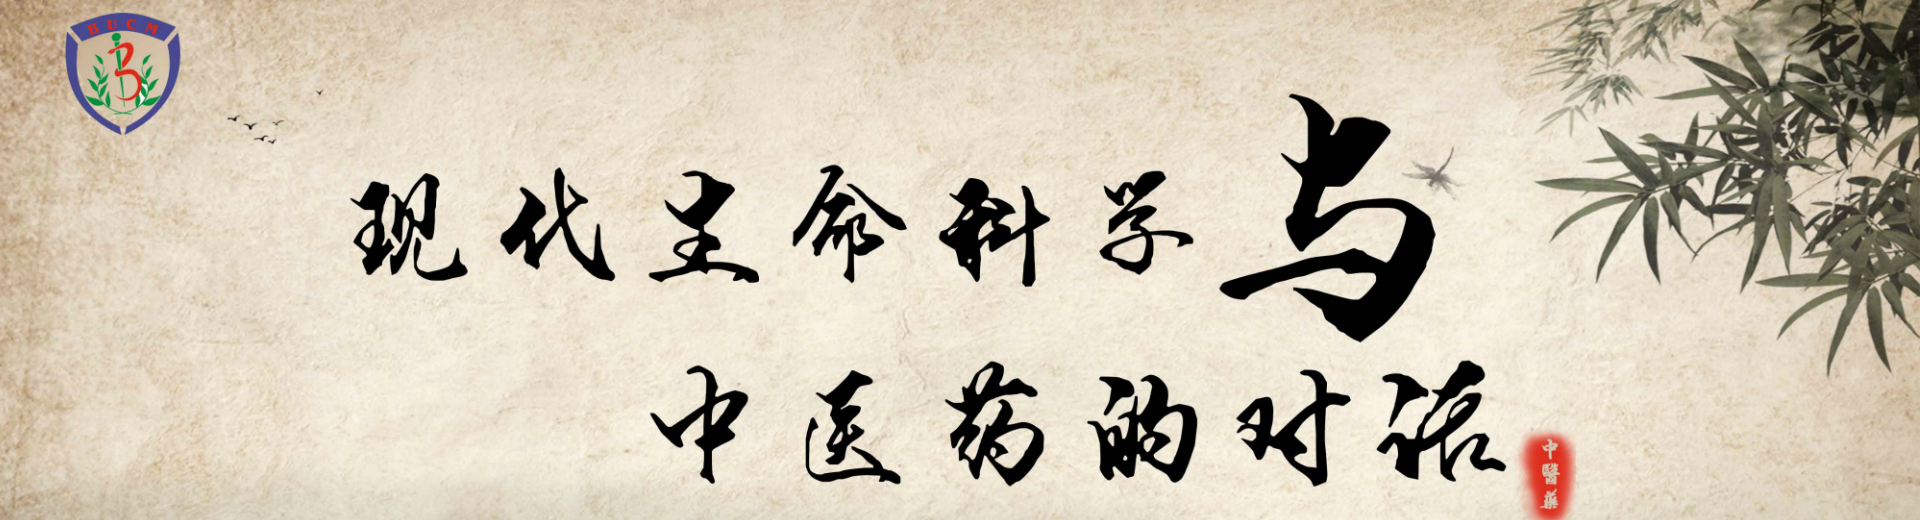 BUCM
现代生命科学与
中医药的对话
中醫藥